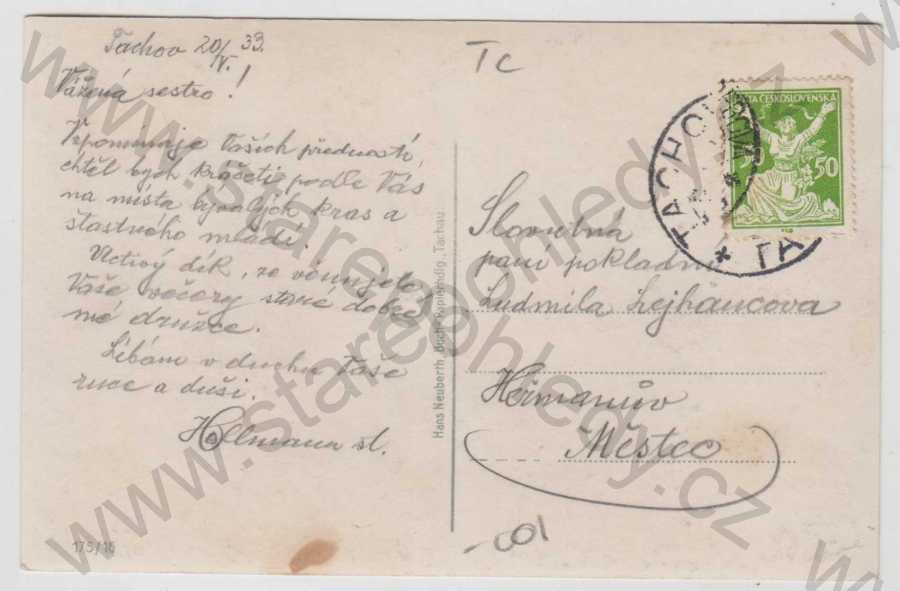 Tachov 20/IV. 33.
Vážená sestro!
Vzpomínaje Vašich předností,
chtěl bych kráčeti podle Vás
na místa bývalých kras a
šťastného mládí.
Uctivý dík, že věnujete
Vaše večery staré dobré
mé družce.
Líbám v duchu Vaše
ruce a duši.
st.
175/16
Hans Neuberth, Buch- Papierhdlg., Tachau
TC
TACHOV
TA
ČESKOSLOVENSKÁ
50
Slovutná
paní pokladní
Ludmila
Heřmanův
Městec